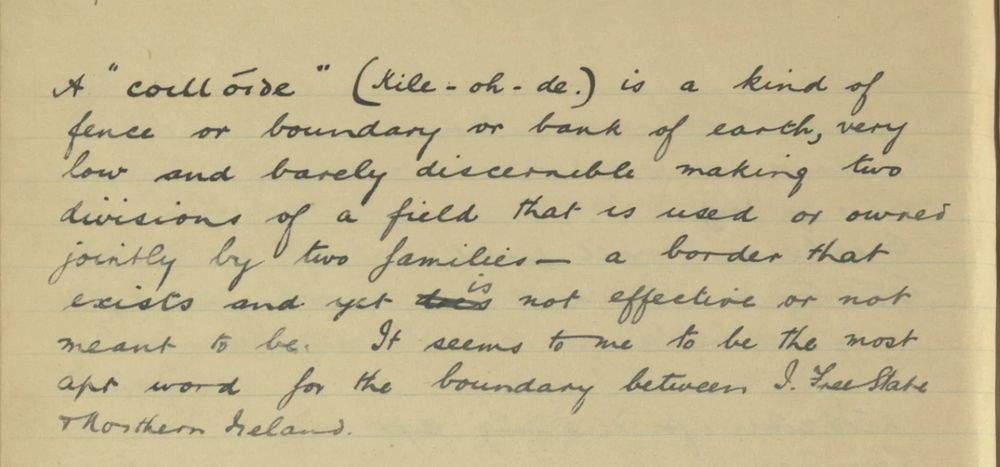 A "coillóide" (Kile-oh-de.) is a kind of
fence or boundary or bank of earth, very
low and barely discernible making two
divisions of a field that is used or owned
jointly by two families — a border that
exists and yet is not effective or not
meant to be. It seems to me to be the most
apt word for the boundary between I. Free State
& Northern Ireland.